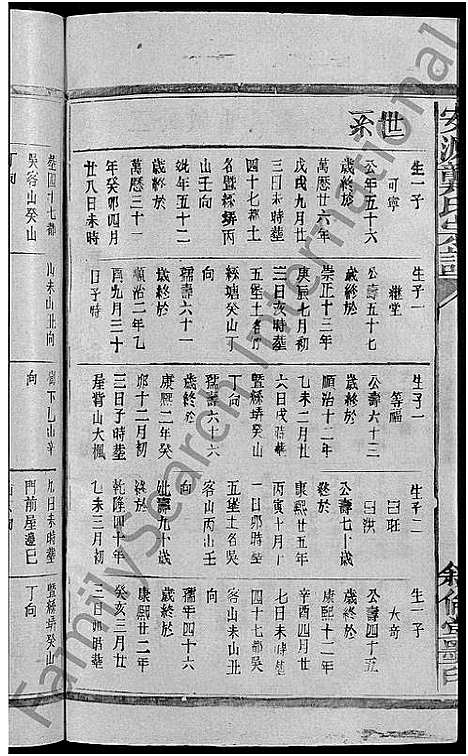 世系
生一子
可寧
公年五十六
歲終於
萬曆廿六年
戊戌九月廿
三日未時塟
四十七都土
名暨綠蛴丙
山壬向
妣年五十二
歲終於
萬曆三十一
年癸卯四月
廿八日未時
生子一
繼堂
公壽五十七
歲終於
崇正十三年
庚辰七月初
三日亥時塟
五堡土名竹
綠塘癸山丁
向
孺壽六十一
歲終於
順治二年乙
酉九月三十
日子時
生子一
等福
公壽六十三
歲終於
順治十二年
乙未二月初
六日戌時塟
暨綠蛴癸山
丁向
孺壽六十六
歲終於
康熙二年癸
卯十二月初
三日子時塟
屋背山大楓
生子二
曰旺
曰洪
公壽七十歲
終於
康熙廿五年
丙寅十月廿
一日卯時塟
五堡土名吳
客山丙山壬
向
妣壽九十歲
終於
乾隆四十年
乙未三月初
生一子
大奇
公壽四十五
歲終於
康熙二十年
辛酉四月廿
七日未時塟
四十七都吳
客山未山丑
向
孺年四十六
歲終於
康熙廿二年
癸亥三月廿
三日卯時塟
塟四十七都
吳客山癸山
丁向
山未山丑向
向
九日未時塟
門前屋邊巳
暨綠蛴癸山
丁向
FamilySearch International